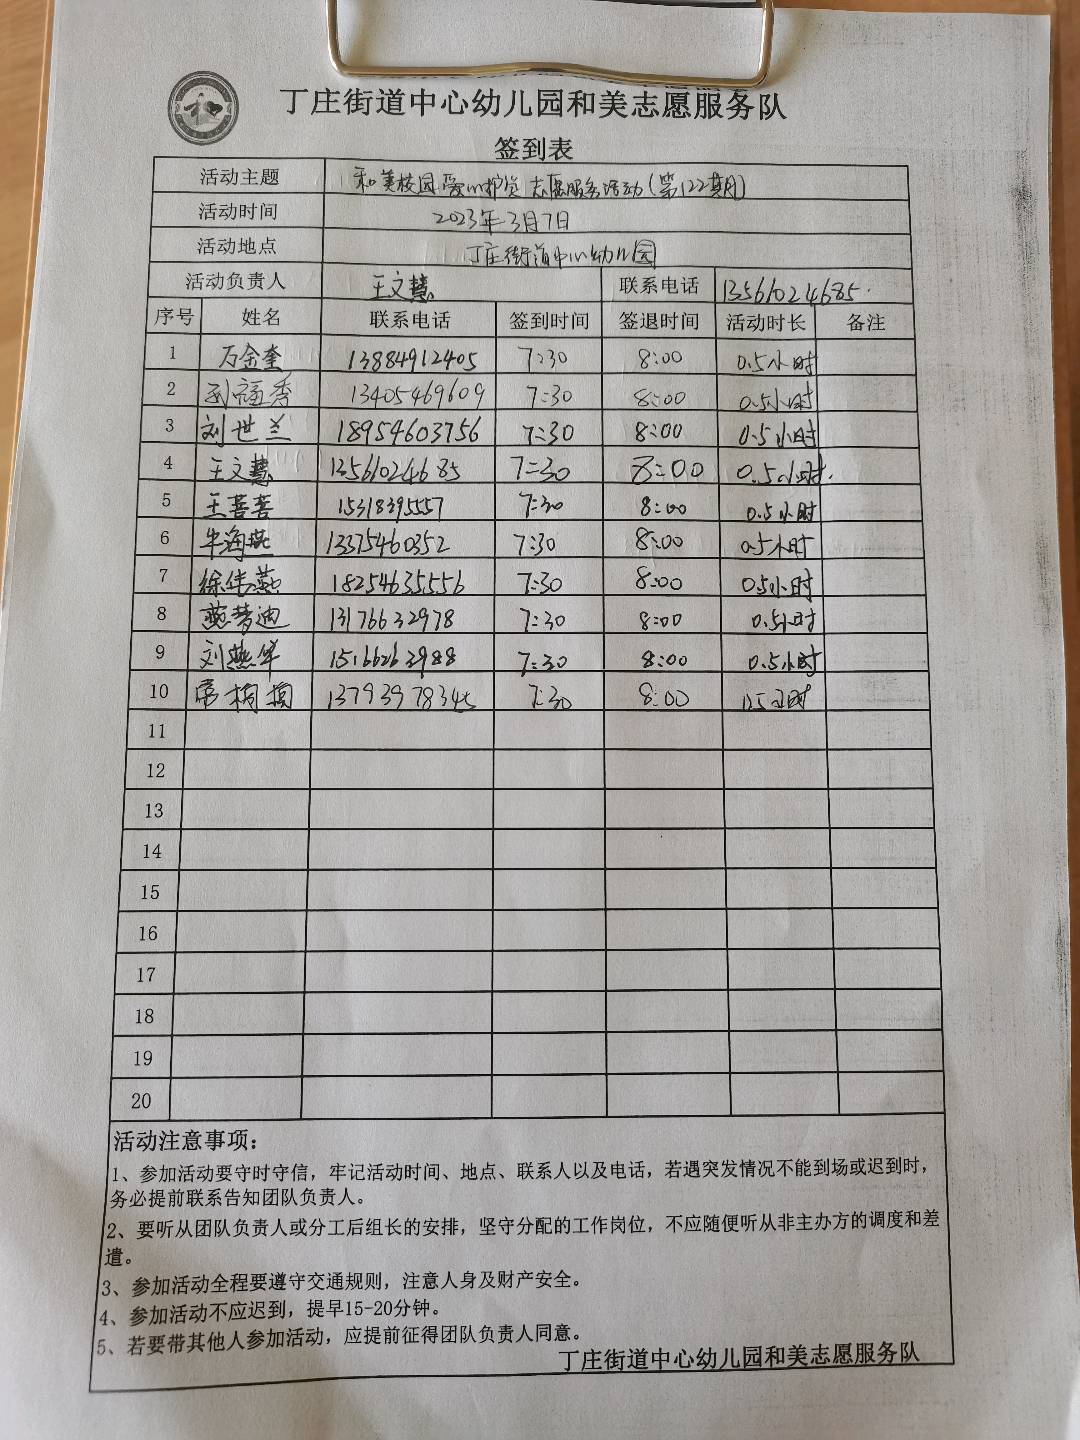 丁庄街道中心幼儿园和美志愿服务队
签到表
活动主题 和美校园 爱心护学 志愿服务活动(第122期)
活动时间 2023年3月7日
活动地点 丁庄街道中心幼儿园
活动负责人 王文慧 联系电话 13561024685.
序号 姓名 联系电话 签到时间 签退时间 活动时长 备注
1 万金奎 13884912405 7:30 8:00 0.5小时
2 福秀 13405469609 7:30 8:00 0.5小时
3 刘世兰 18954603756 7:30 8:00 0.5小时
4 王文慧 13561024685 7:30 8:00 0.5小时.
5 王菩菩 15318395557 7:30 8:00 0.5小时
6 牛海燕 13375460352 7:30 8:00 0.5小时
7 徐伟燕 18254635556 7:30 8:00 0.5小时
8 燕梦迪 13176632978 7:30 8:00 0.5小时
9 刘燕华 15166263988 7:30 8:00 0.5小时
10 13793978345 7:30 8:00 0.5小时
11
12
13
14
15
16
17
18
19
20
活动注意事项：
1、参加活动要守时守信，牢记活动时间、地点、联系人以及电话，若遇突发情况不能到场或迟到时，
务必提前联系告知团队负责人。
2、要听从团队负责人或分工后组长的安排，坚守分配的工作岗位，不应随便听从非主办方的调度和差
遣。
3、参加活动全程要遵守交通规则，注意人身及财产安全。
4、参加活动不应迟到，提早15-20分钟。
5、若要带其他人参加活动，应提前征得团队负责人同意。
丁庄街道中心幼儿园和美志愿服务队